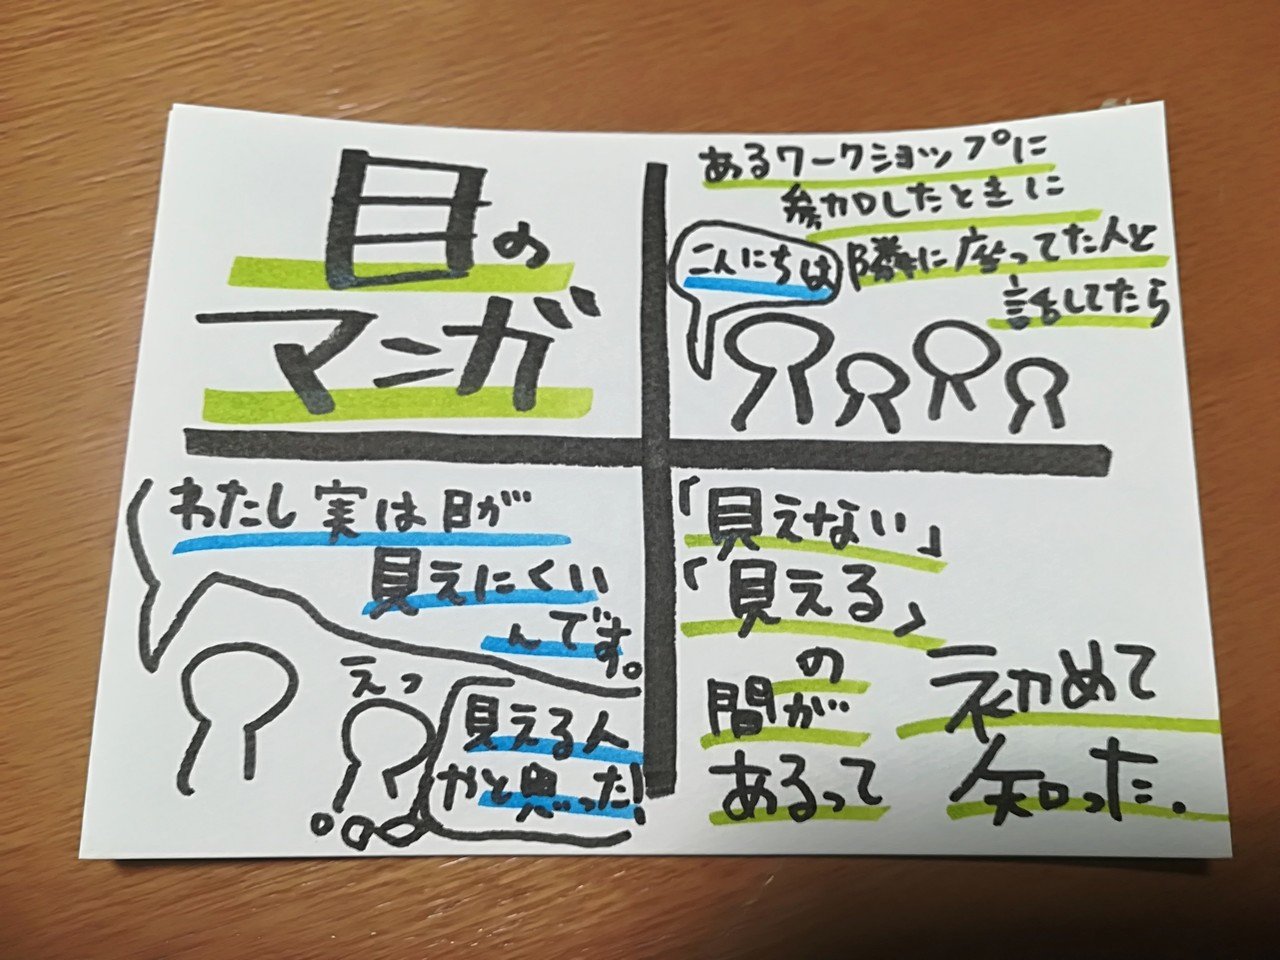 目の
マンガ
あるワークショップに
参加したときに
こんにちは
隣に座ってた人と
話してたら
わたし実は目が
見えにくい
んです。
えっ
見える人
かと思った!
「見えない」
「見える」
の
間が
あるって
初めて
知った.